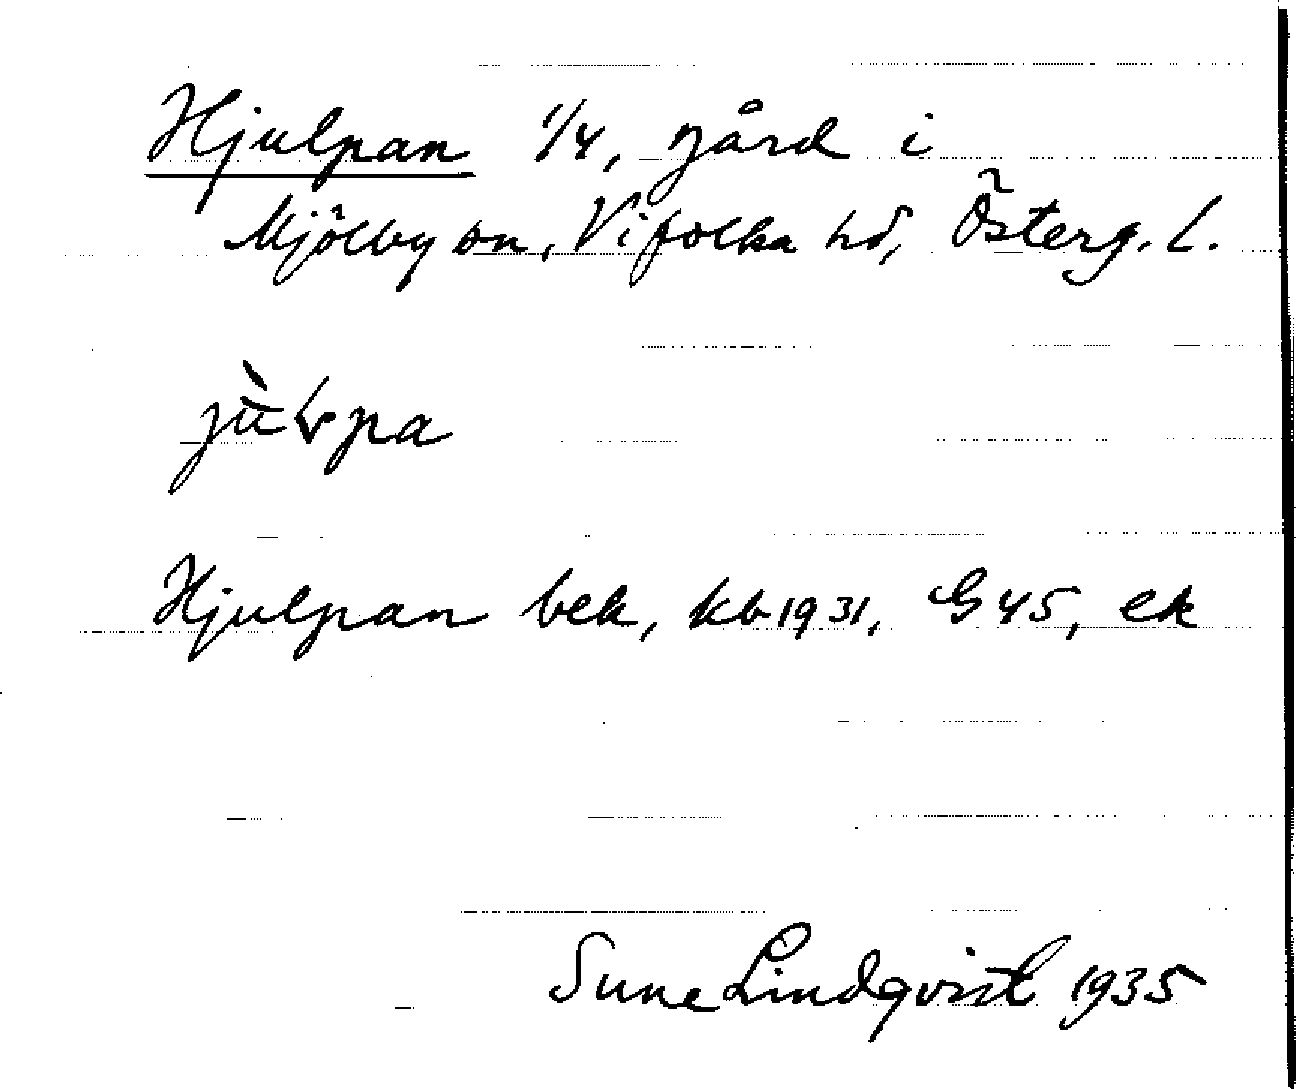 Hjulpan 1/4, gård i
Mjölby sn, Vifolka hd, Österg. l.
Hjulpan bek, kb 1931, G 45, ek
Sune Lindqvist 1935